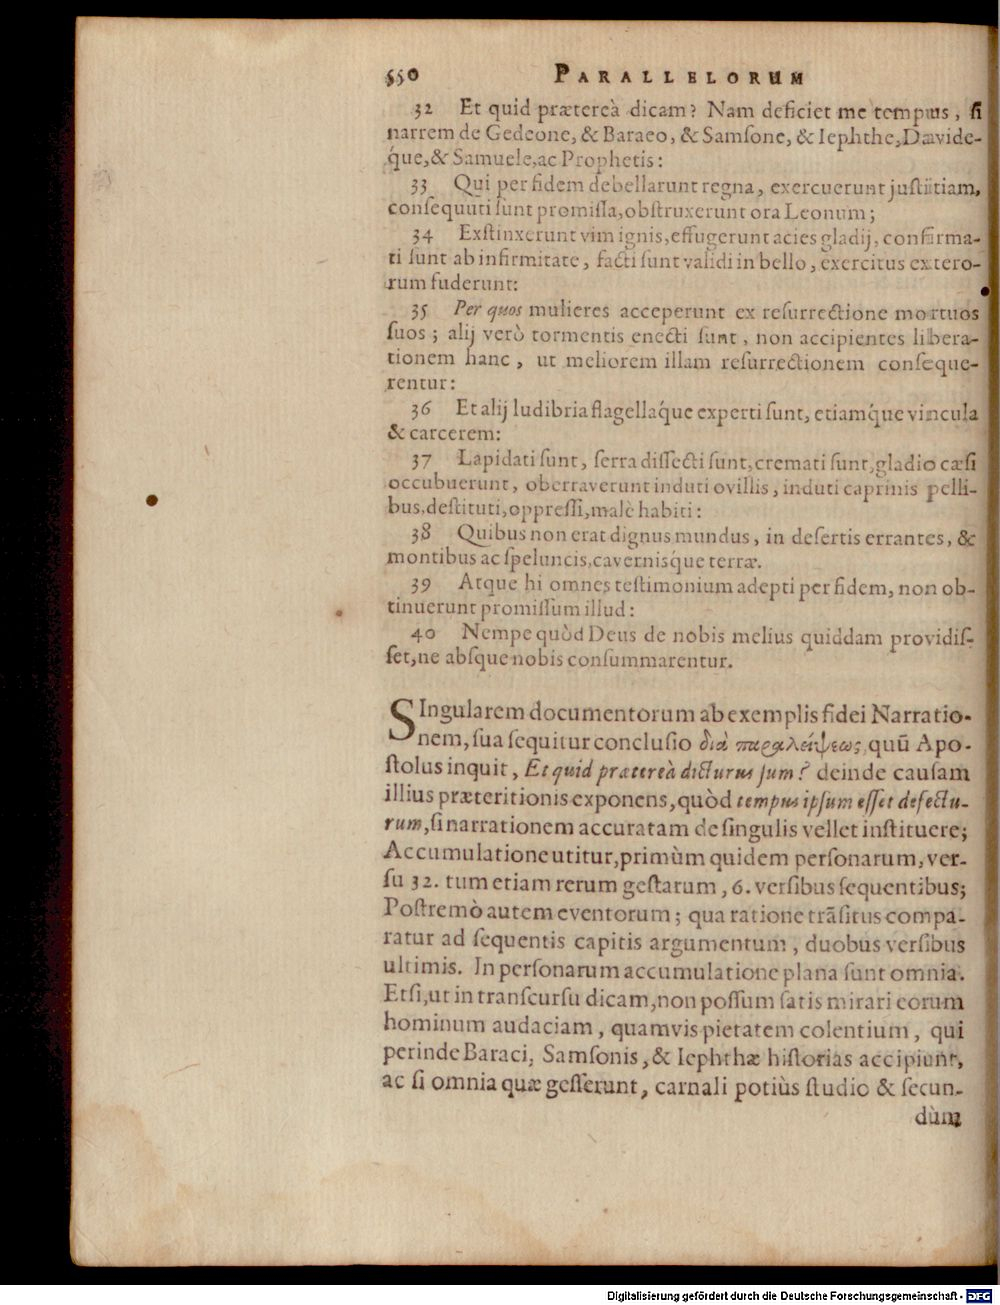 550 PARALLELORUM
32 Et quid prætereà dicam? Nam deficiet me tempus, ſi
narrem de Gedeone, & Baraeo, & Samſone, & Iephthe, Davide-
q́ue, & Samuele, ac Prophetis:
33 Qui per fidem debellarunt regna, exercuerunt juſtitiam,
conſequuti ſunt promiſſa, obſtruxerunt ora Leonum;
34 Exſtinxerunt vim ignis, effugerunt acies gladij, confirma-
ti ſunt ab infirmitate, facti ſunt validi in bello, exercitus extero-
rum fuderunt:
35 Per quos mulieres acceperunt ex reſurrectione mortuos
ſuos; alij verò tormentis enecti ſunt, non accipientes libera-
tionem hanc, ut meliorem illam reſurrectionem conſeque-
rentur:
36 Et alij ludibria flagellaq́ue experti ſunt, etiamq́ue vincula
& carcerem:
37 Lapidati ſunt, ſerra diſſecti ſunt, cremati ſunt, gladio cæſi
occubuerunt, oberraverunt induti ovillis, induti caprinis pelli-
bus, deſtituti, oppreſſi, malè habiti:
38 Quibus non erat dignus mundus, in deſertis errantes, &
montibus ac ſpeluncis, cavernisq́ue terræ.
39 Atque hi omnes teſtimonium adepti per fidem, non ob-
tinuerunt promiſſum illud:
40 Nempe quòd Deus de nobis melius quiddam providiſ-
ſet, ne abſque nobis conſummarentur.
SIngularem documentorum ab exemplis fidei Narratio-
nem, ſua ſequitur concluſio διὰ παραλείψεως, quū Apo-
ſtolus inquit, Et quid prætereà dicturus ſum? deinde cauſam
illius præteritionis exponens, quòd tempus ipſum eſſet defectu-
rum, ſi narrationem accuratam de ſingulis vellet inſtituere;
Accumulatione utitur, primùm quidem perſonarum, ver-
ſu 32. tum etiam rerum geſtarum, 6. verſibus ſequentibus;
Poſtremò autem eventorum; qua ratione trāſitus compa-
ratur ad ſequentis capitis argumentum, duobus verſibus
ultimis. In perſonarum accumulatione plana ſunt omnia.
Etſi, ut in transcurſu dicam, non poſſum ſatis mirari eorum
hominum audaciam, quamvis pietatem colentium, qui
perinde Baraci, Samſonis, & Iephthæ hiſtorias accipiunt,
ac ſi omnia quæ geſſerunt, carnali potiùs ſtudio & ſecun-
dùm
Digitalisierung gefördert durch die Deutsche Forschungsgemeinschaft - DFG